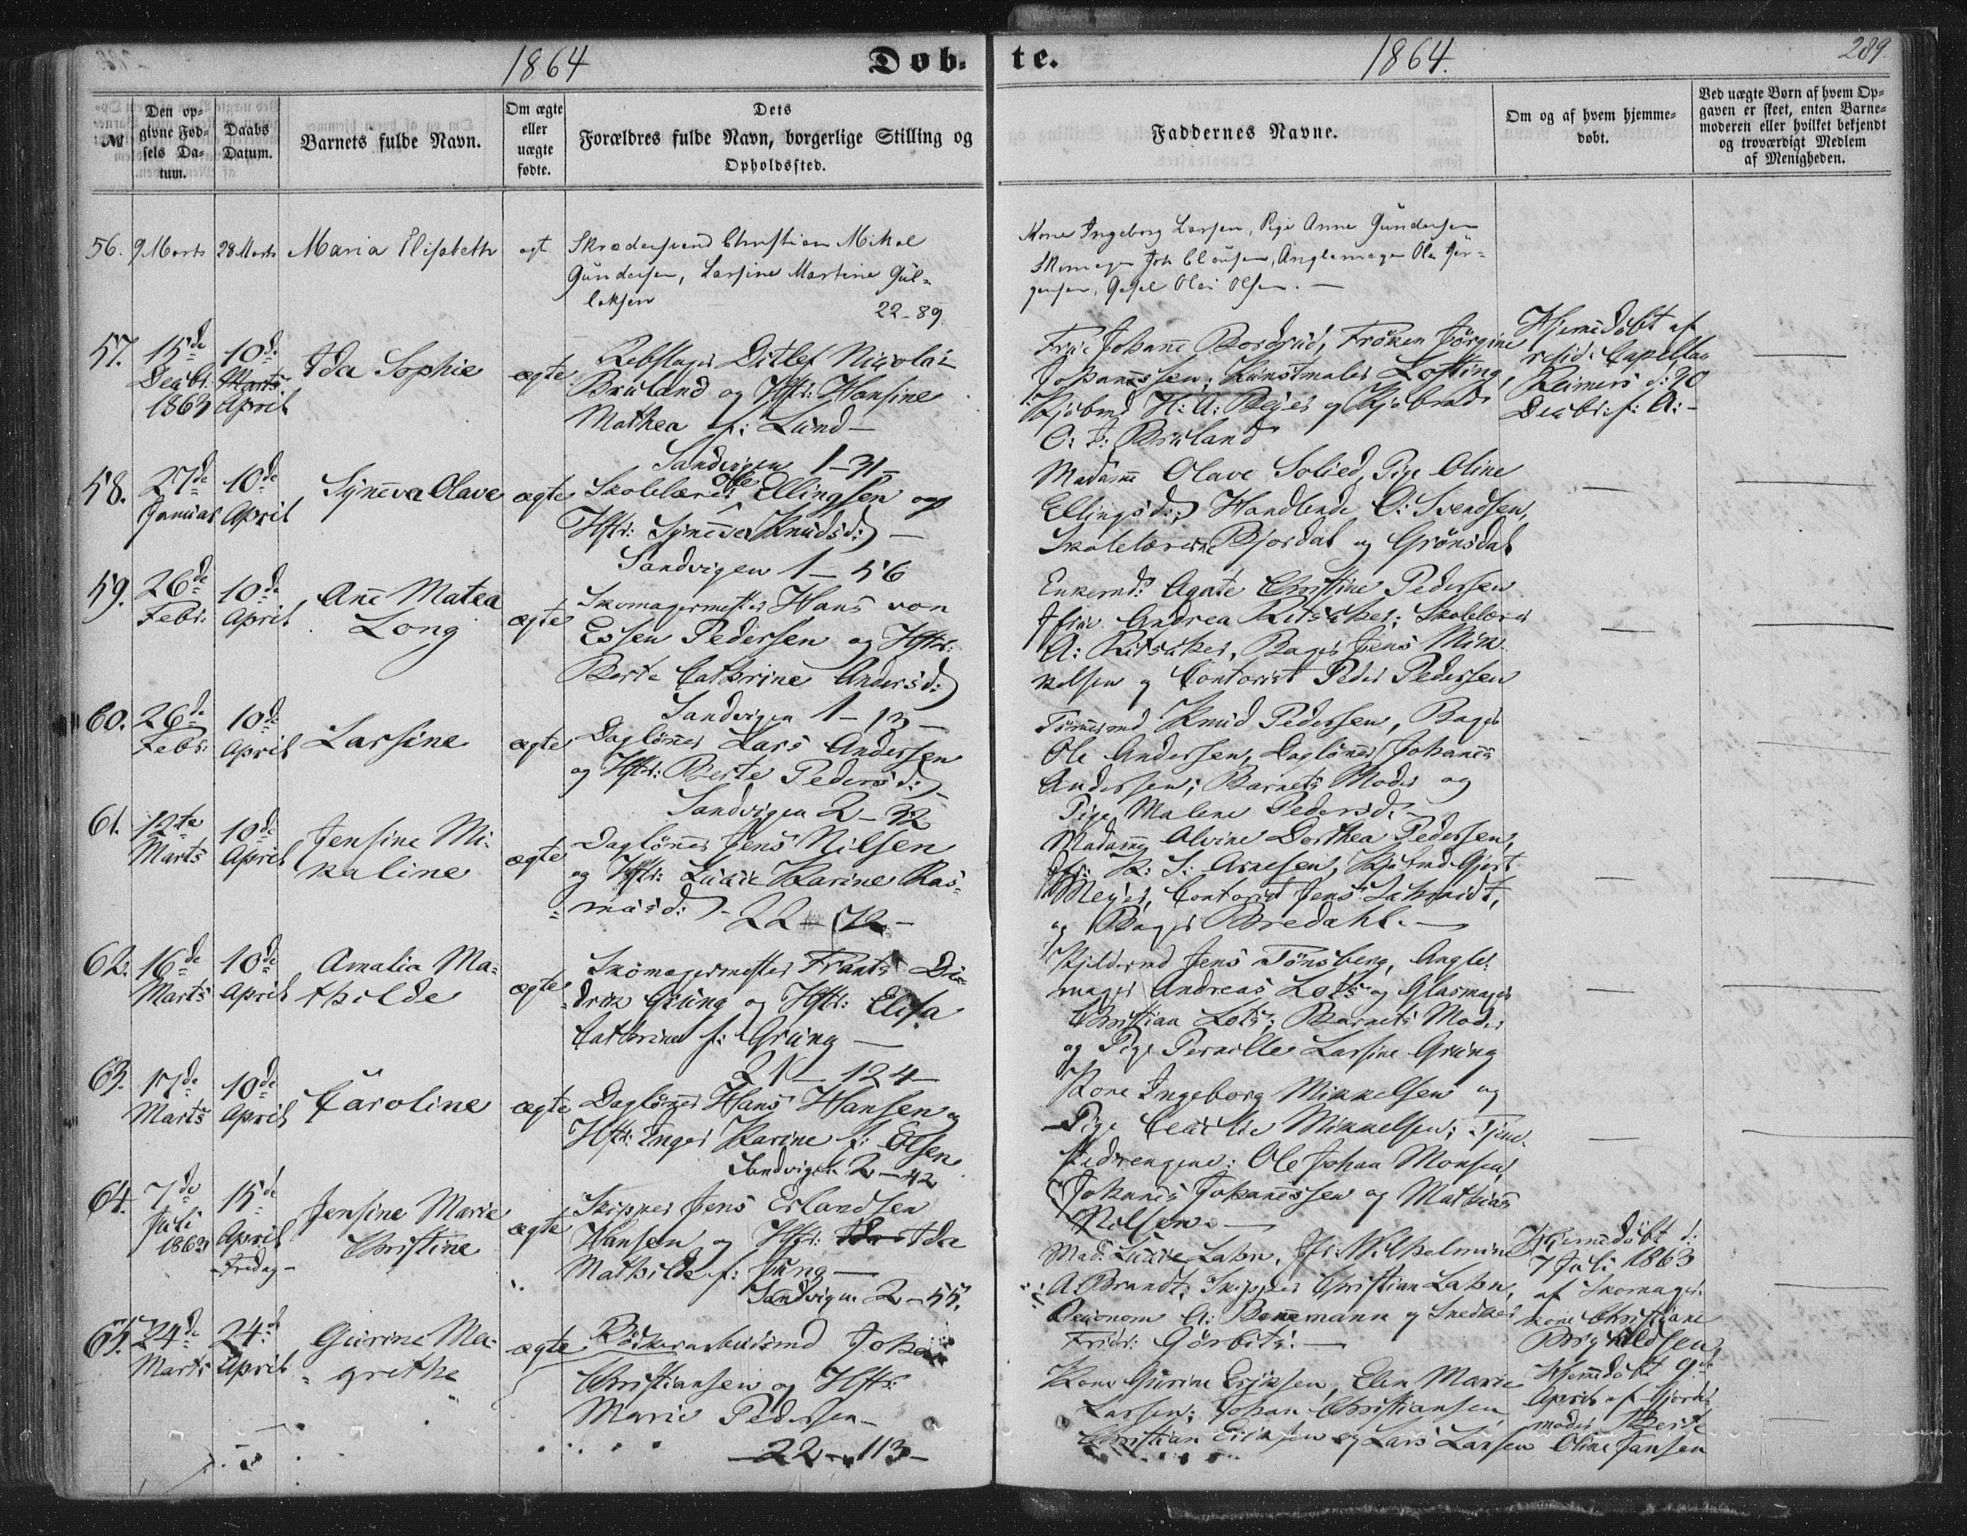 1864
Døb-
te.
1864.
289.
№
Den op-
givne Fød-
sels Da-
tum.
Daabs
Datum.
Barnets fulde Navn.
Om ægte
eller
uægte
fødte.
Dets
Forældres fulde Navn, borgerlige Stilling og
Opholdssted.
Faddernes Navne.
Om og af hvem hjemme-
døbt.
Ved uægte Børn af hvem Op-
gaven er skeet, enten Barne-
moderen eller hvilket bekjendt
og troværdigt Medlem
af Menigheden.
56.
9 Marts
28 Marts
Maria Elisabeth
egt
Skrædersvend Christian Mikal
Gundersen, Larsine Martine Gul-
leksen
22-89.
Kone Ingeborg Larsen, Pige Anne Gundersen
Skomager Joh Clausen, Anglemager Ole Jør-
gensen, Olai Olsen. —
57.
15de
Decbr:
1863
10de
Marts
April
Ida Sophie
ægte
Rebslager Ditlef Nicolai
Bruland og Hstr: Hansine
Mathea f: Lund —
Sandvigen 1-31-
Frue Johanne Bordrud, Frøken Jørgine
Johannessen, Kunstmaler Lofting,
Kjøbmd H: A: Beyer og Kjøbmd
O: J: Bruland
Hjemmedøbt af
resid: Capellan
Reimers d: 30
Decbr: f: A: -
58.
27de
Januar
10de
April
Synneva Olave
ægte
Skolelærer Ole Ellingsen og
Hstr: Synneva Knudsd: —
Sandvigen 1-56
Madame Olave Solied, Pige Oline
Ellingsd:, Handlende O: Svendsen,
Skolelærerne Bjordal og Grønsdal
59.
26de
Febr:
10de
April
Anne Matea
Long
ægte
Skomagermester Hans von
Essen Pedersen og Hstr:
Berte Cathrine Andersd:
Sandvigen 1-13-
Enkemd: Agate Christine Pedersen
Andrea Ritsaker, Skolelærer
A: Ritsaker, Bager Jens Mik-
kelsen og Contorist Peder Pedersen
60.
26de
Febr:
10de
April
Larsine
ægte
Daglønner Lars Andersen
og Hstr: Berte Pedersd: -
Sandvigen 2-32
Tømmermd Knud Pedersen, Bager
Ole Andersen, Daglønner Johannes
Andersen, Barnets Moder og
Pige Malene Pedersd: -
61.
12te
Marts
10de
April
Jensine Mi-
kaline
ægte
Daglønner Jens Nilsen
og Hstr: Lucie Karine Ras-
musd: -
22-72-
Madame Alvine Dorthea Pedersen,
K: S: Arnesen, Kjøbmd Gjert
Meyer, Contorist Jens Schmidt,
og Bager Bredahl. —
62.
16de
Marts
10de
April
Amalia Ma-
thilde
ægte
Skomagermester Frants Did-
drik Grung og Hstr: Elisa
Cathrine f: Grung —
21-124-
Jens Tønsberg, Angle-
mager Andreas Lots og Glasmager
Christian Lots, Barnets Moder
og Pige Pernille Larsine Grung
63.
17de
Marts
10de
April
Caroline
ægte
Daglønner Hans Hansen og
Hstr: Inger Karine f: Olsen
Sandvigen 2-42
Kone Ingeborg Mikkelsen og
Pige Cecilie Mikkelsen, Tjene-
stedrengene: Ole Johan Monsen,
Johannes Johannessen og Mathias
Nilsen. —
64.
7de
Juli
1863
15de
April
-Fredag-
Jensine Marie
Christine
ægte
Skipper Jens Erlandsen
Hansen og Hstr: Ida
Mathilde f: Jung —
Sandvigen 2-55.
Mad: Lucie Lahn, Jfr: Wilhelmine
A Brandt, Skipper Christian Lahn,
Oeconom C: Bennemann og Snedker
Fridr: Görbits. —
Hjemmedøbt d:
7 Juli 1863
af Skomager-
kone Christiane
Brynildsen,
65.
24de
Marts
24de
April
Gurine Ma-
grethe
ægte
Bødkerarbeidsmd Johan
Christiansen og Hstr:
Marie Pedersen-
22-113-
Kone Gurine Eriksen, Elen Marie
Larsen, Johan Christiansen,
Christian Eriksen og Lars Larsen
Hjemmedøbt 9de
April af Gjorde-
moder Berte
Oline Jansen